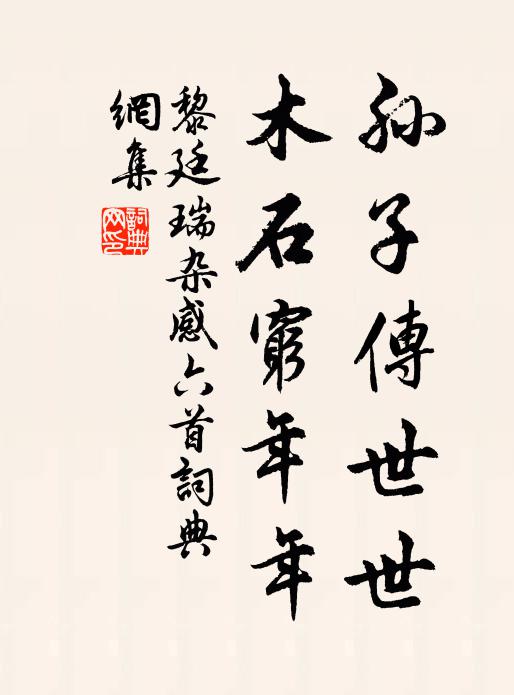 孫子傳世世
木石窮年年
黎廷瑞杂感六首詞典
網集
詞典
网印